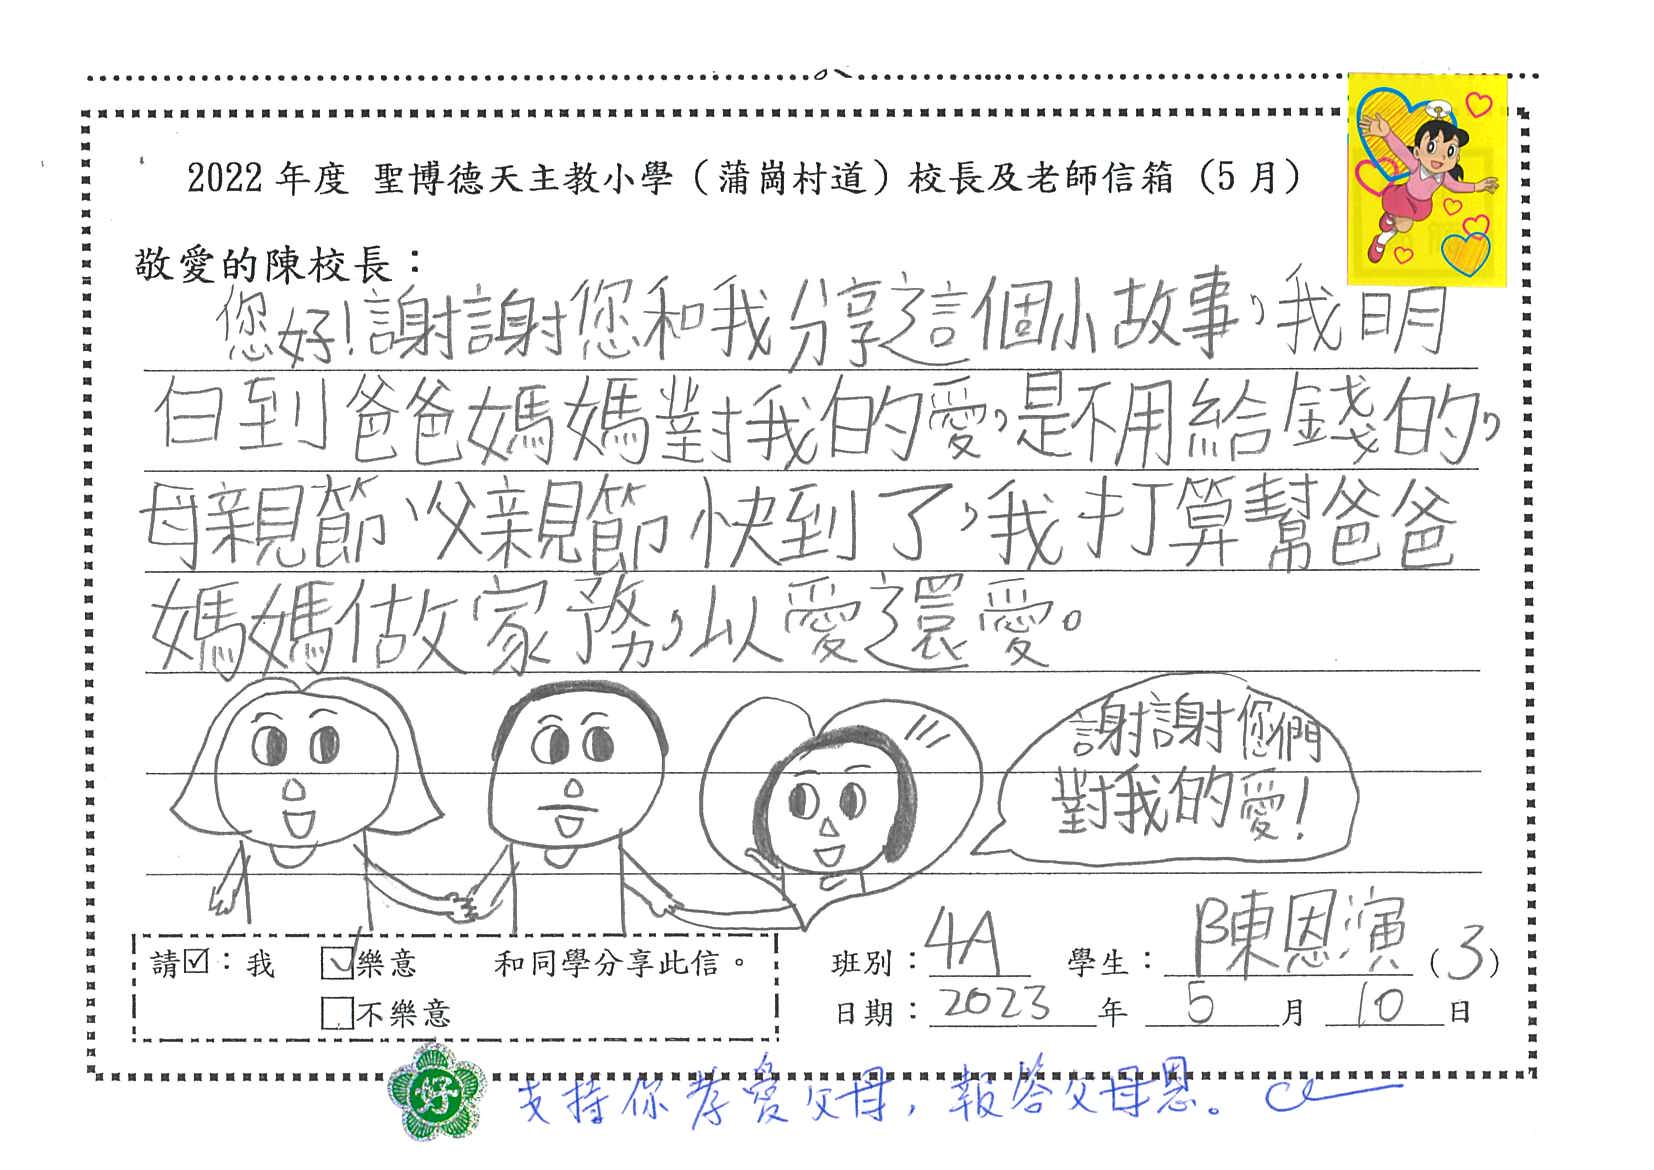 2022 年度 聖博德天主教小學（蒲崗村道）校長及老師信箱（5 月）
敬愛的陳校長：
您好！謝謝您和我分享這個小故事，我明
白到爸爸媽媽對我的愛，是不用給錢的，
母親節、父親節快到了，我打算幫爸爸
媽媽做家務，以愛還愛。
謝謝您們
對我的愛！
請☑：我 ☑樂意 和同學分享此信。
□不樂意
班別：4A 學生：陳恩演（3）
日期：2023 年 5 月 10 日
好
支持你孝愛父母，報答父母恩。